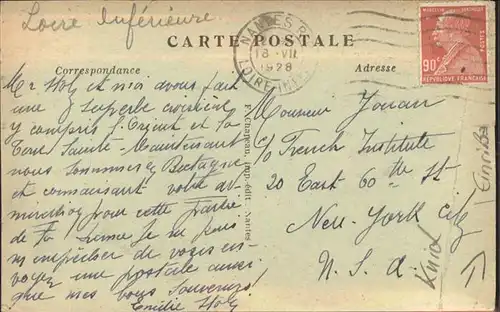 Loire Inférieure
CARTE POSTALE
Correspondance
Adresse
NANTES
18 - VII
1928
LOIRE INF
90c
RÉPUBLIQUE FRANÇAISE
Mr Stoly et moi avons fait
une superbe croisière
y compris l'Orient et la
Terre Sainte - Maintenant
nous sommes en Bretagne
et connaissant votre ad-
miration pour cette partie
de la je ne puis
m'empêcher de vous en-
voyer une postale ainsi
que mes bons souvenirs!
Emilie Stoly
F. Chapeau, imp.-édit., Nantes
Monsieur
c/o French Institute
20 East 60th St
New-York City
U. S. A.